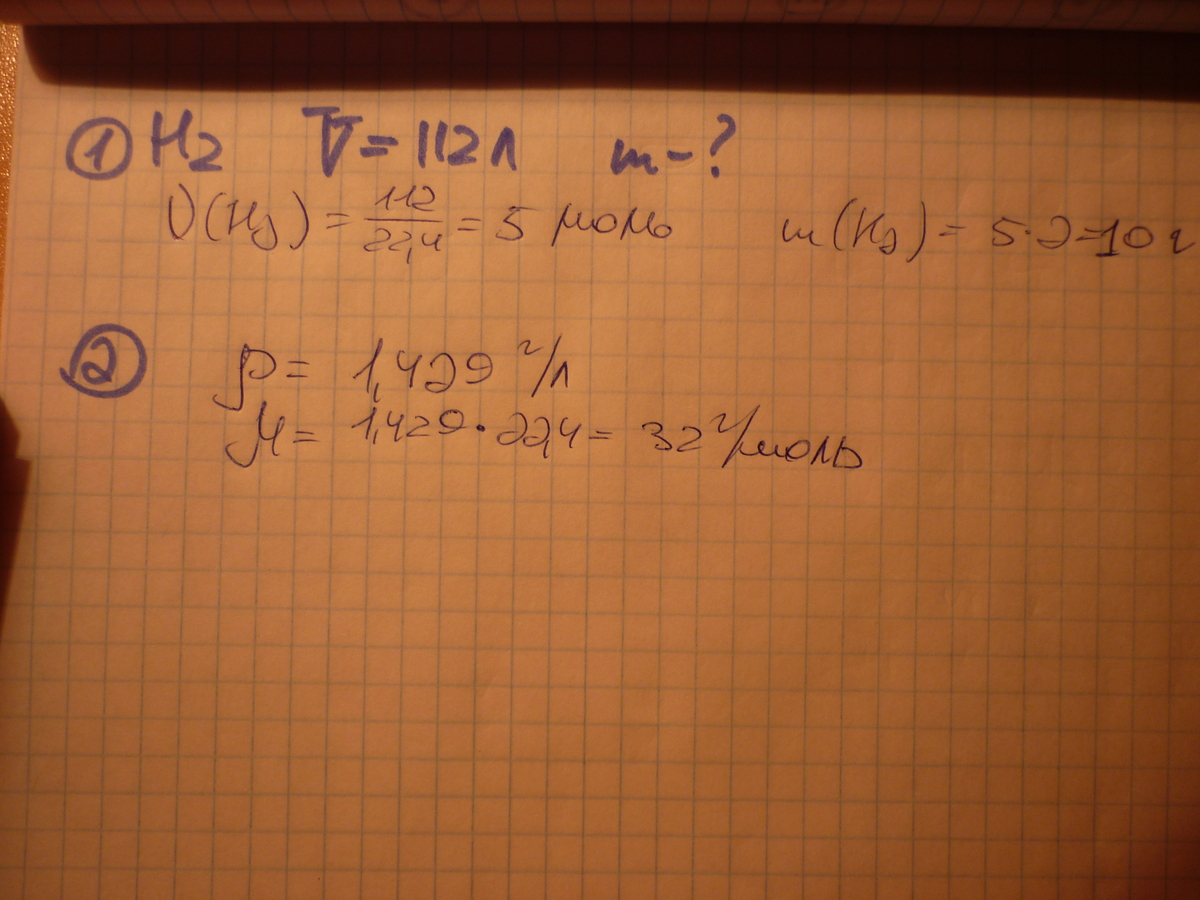 ① H2 V = 112 л m - ?
ν(H2) = 112/22,4 = 5 моль m(H2) = 5·2=10 г
② ρ = 1,429 г/л
M = 1,429·22,4 = 32 г/моль